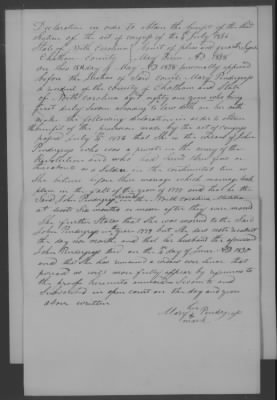 Declaration in order to obtain the benefit of the third
Section of the act of congress of the 4 July 1836
State of North Carolina Court of pleas and quarter Sessions
Chatham County May Term AD 1838
On this day of May AD 1838 personally appeared
before the Justices of Said Court Mary Pendergrass
a resident of the county of Chatham and State
of North Carolina aged eighty one years who being
first duly Sworn according to law doth on her oath
make the following declaration in order to obtain
benefit of the provision made by the act of Congress
passed July 4th 1836 that she is the Widow of John
Pendergrass who was a private in the army of the
Revolution and who had
as a Soldier in the continental line as
She believes before their marriage which marriage took
place in the fall of the year of 1779 and that he the
Said John Pendergrass in the North Carolina militia
at least Six months or more after they were married
She further States that She was married to the Said
John Pendergrass in year 1779 but She does not recollect
the day nor month, and that her husband the aforesaid
John Pendergrass died on the day of June AD
and that She has remained a widow ever Since that
period as will more fully appear by reference to
the proofs hereunto annexed Sworn to and
Subscribed in open court on the day and year
above written
her
Mary X Pendergrass
mark